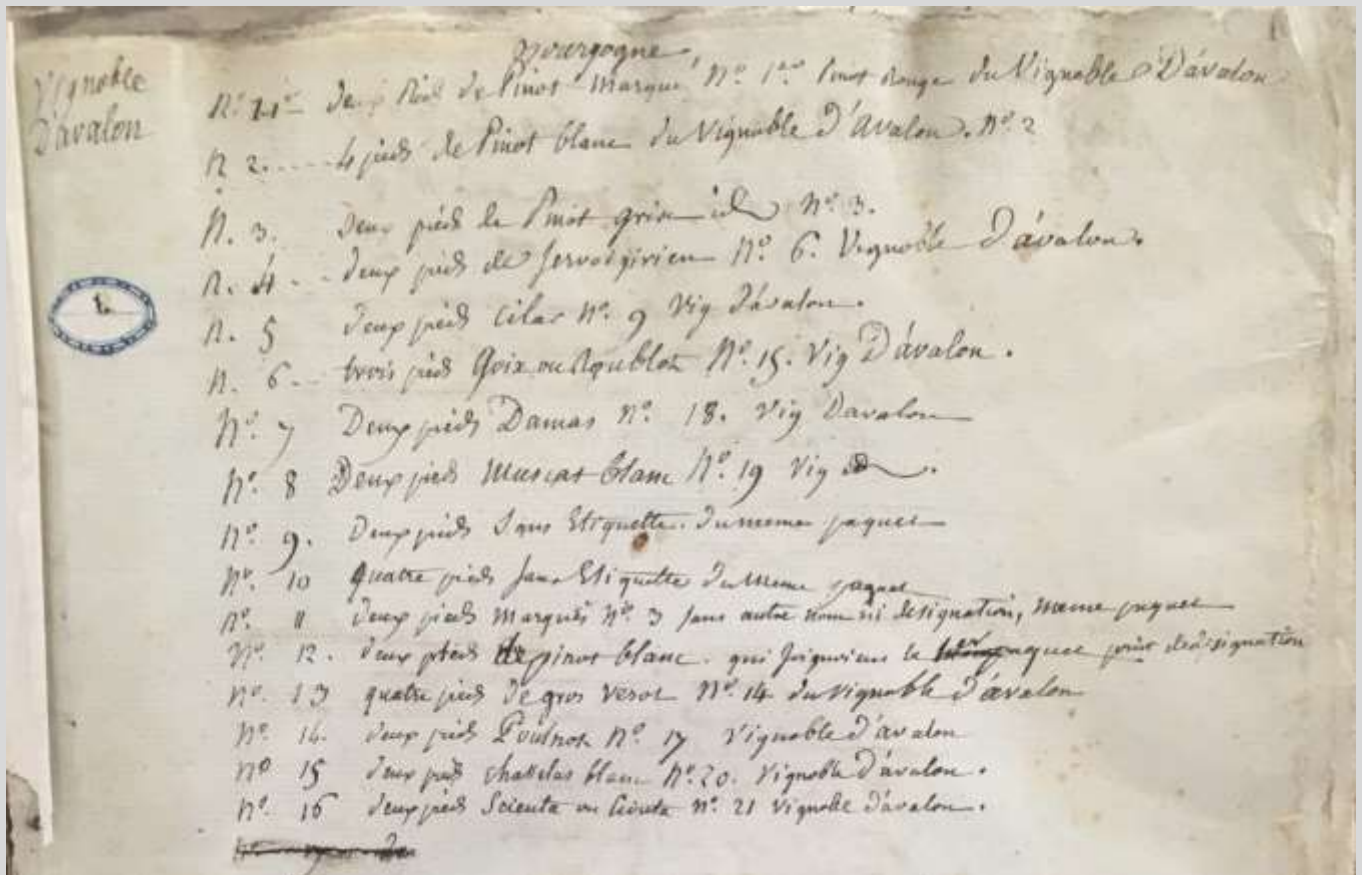 Bourgogne
Vignoble
D'avalon
N.º 1er Deux Pieds de Pinot Marqué Nº. 1er Pinot Rouge du Vignoble D'avalon
N 2..... 4 pieds de Pinot blanc du Vignoble d'Avalon. Nº. 2
N. 3. Deux pieds de Pinot gris id Nº. 3.
N. 4 .. deux pieds de Servoigirien Nº. 6. Vignoble D'avalon.
N. 5 deux pieds Nº. 9 Vig d'avalon.
N. 6... trois pieds Goix ou Nº. 15. Vig D'avalon.
Nº. 7 Deux pieds Damas Nº. 18. Vig Davalon
Nº. 8 Deux pieds Muscat blanc Nº. 19 Vig
Nº. 9. Deux pieds Sans Etiquette. du meme paquet
Nº. 10 quatre pieds sans Etiquette du Meme paquet
Nº. 11 deux pieds marqués Nº. 3 sans autre nom ni designation, meme paquet
Nº. 12. deux pieds de pinot blanc. qui le paquet designation
Nº. 13 quatre pieds de gros Verot Nº. 14 du Vignoble d'avalon
Nº. 14. deux pieds Nº. 17 Vignoble d'avalon
Nº 15 deux pieds chasselas blanc Nº. 20. Vignoble d'avalon.
Nº. 16 deux pieds Scienta ou Nº. 21 Vignoble d'avalon.